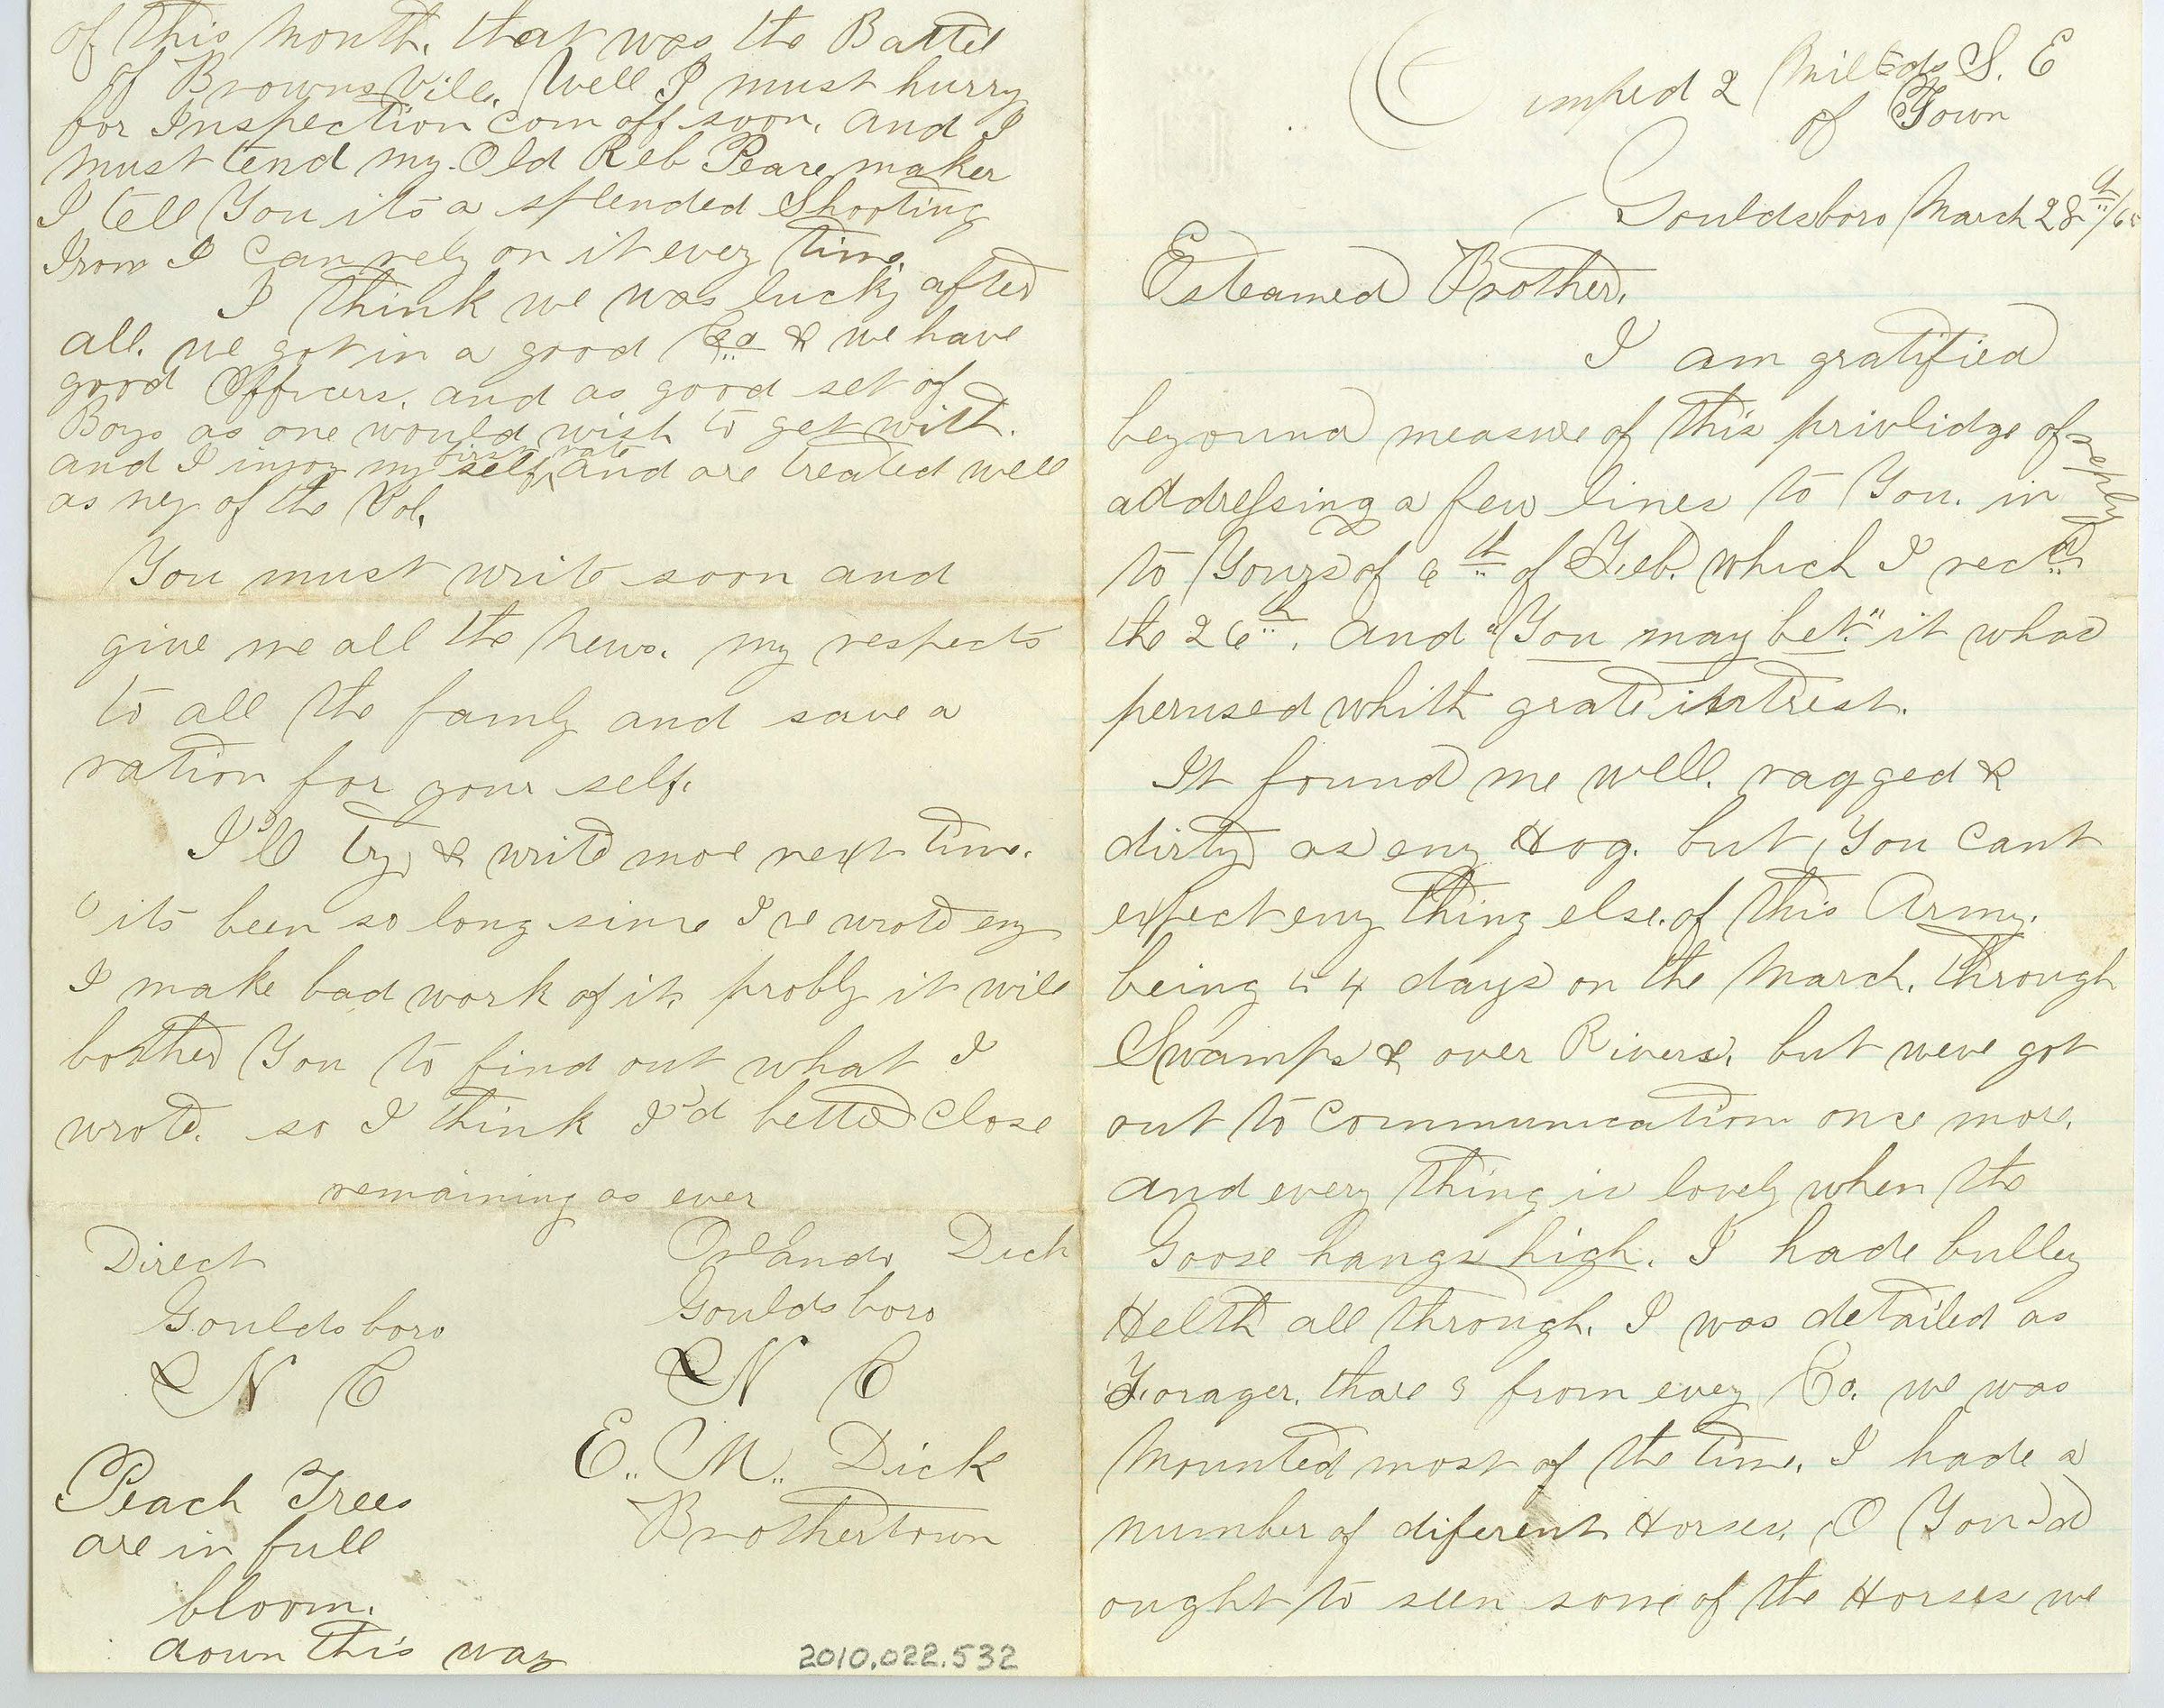 of this Month. that was the Battel
of Brownsvile. Well I must hurry
for Inspection com off soon. and I
must tend my Old Reb Peace maker
I tell You its a splended Shooting
Iron I can rely on it evey time.
I think we was lucky after
all. we got in a good Co & we have
good Officers. and as good set of
Boys as one would wish to get with.
and I injoy my self first rate and are treated well
as ney of the Vol.
You must write soon and
give me all the News. my respects
to all the famly and save a
ration for your self.
I'll try & write moe next time.
its been so long since I've wrote eny
I make bad work of it. probly it will
bother You to find out what I
wrote. so I think I'd better close
remaining as ever
Orlando Dick
Direct
Gouldsboro
N C
Gouldsboro
N C
E. M. Dick
Brothertown
Peach Trees
are in full
bloom.
down this way
2010.022.532
Camped 2 Miles S. E
of Town
Gouldsboro March 28th/65
Esteamed Brother,
I am gratified
beyound measure of this privlidge of
addressing a few lines to You. in reply
to Yours of 6th of Feb. which I recd
the 26th. and "You may bet." it whas
perused whith grate intrest.
It found me well. ragged &
dirty as eny Hog. but You cant
expect eny thing else of this Army.
being 54 days on the March. through
Swamps & over Rivers. but weve got
out to Communication once more.
and every thing is lovely when the
Goose hangs high. I hade bulley
Helth all through. I was detailed as
Forager. thare 9 from evey Co. we was
Mounted most of the time. I hade a
number of diferent Horses. O You'd
ought to seen some of the Horses we